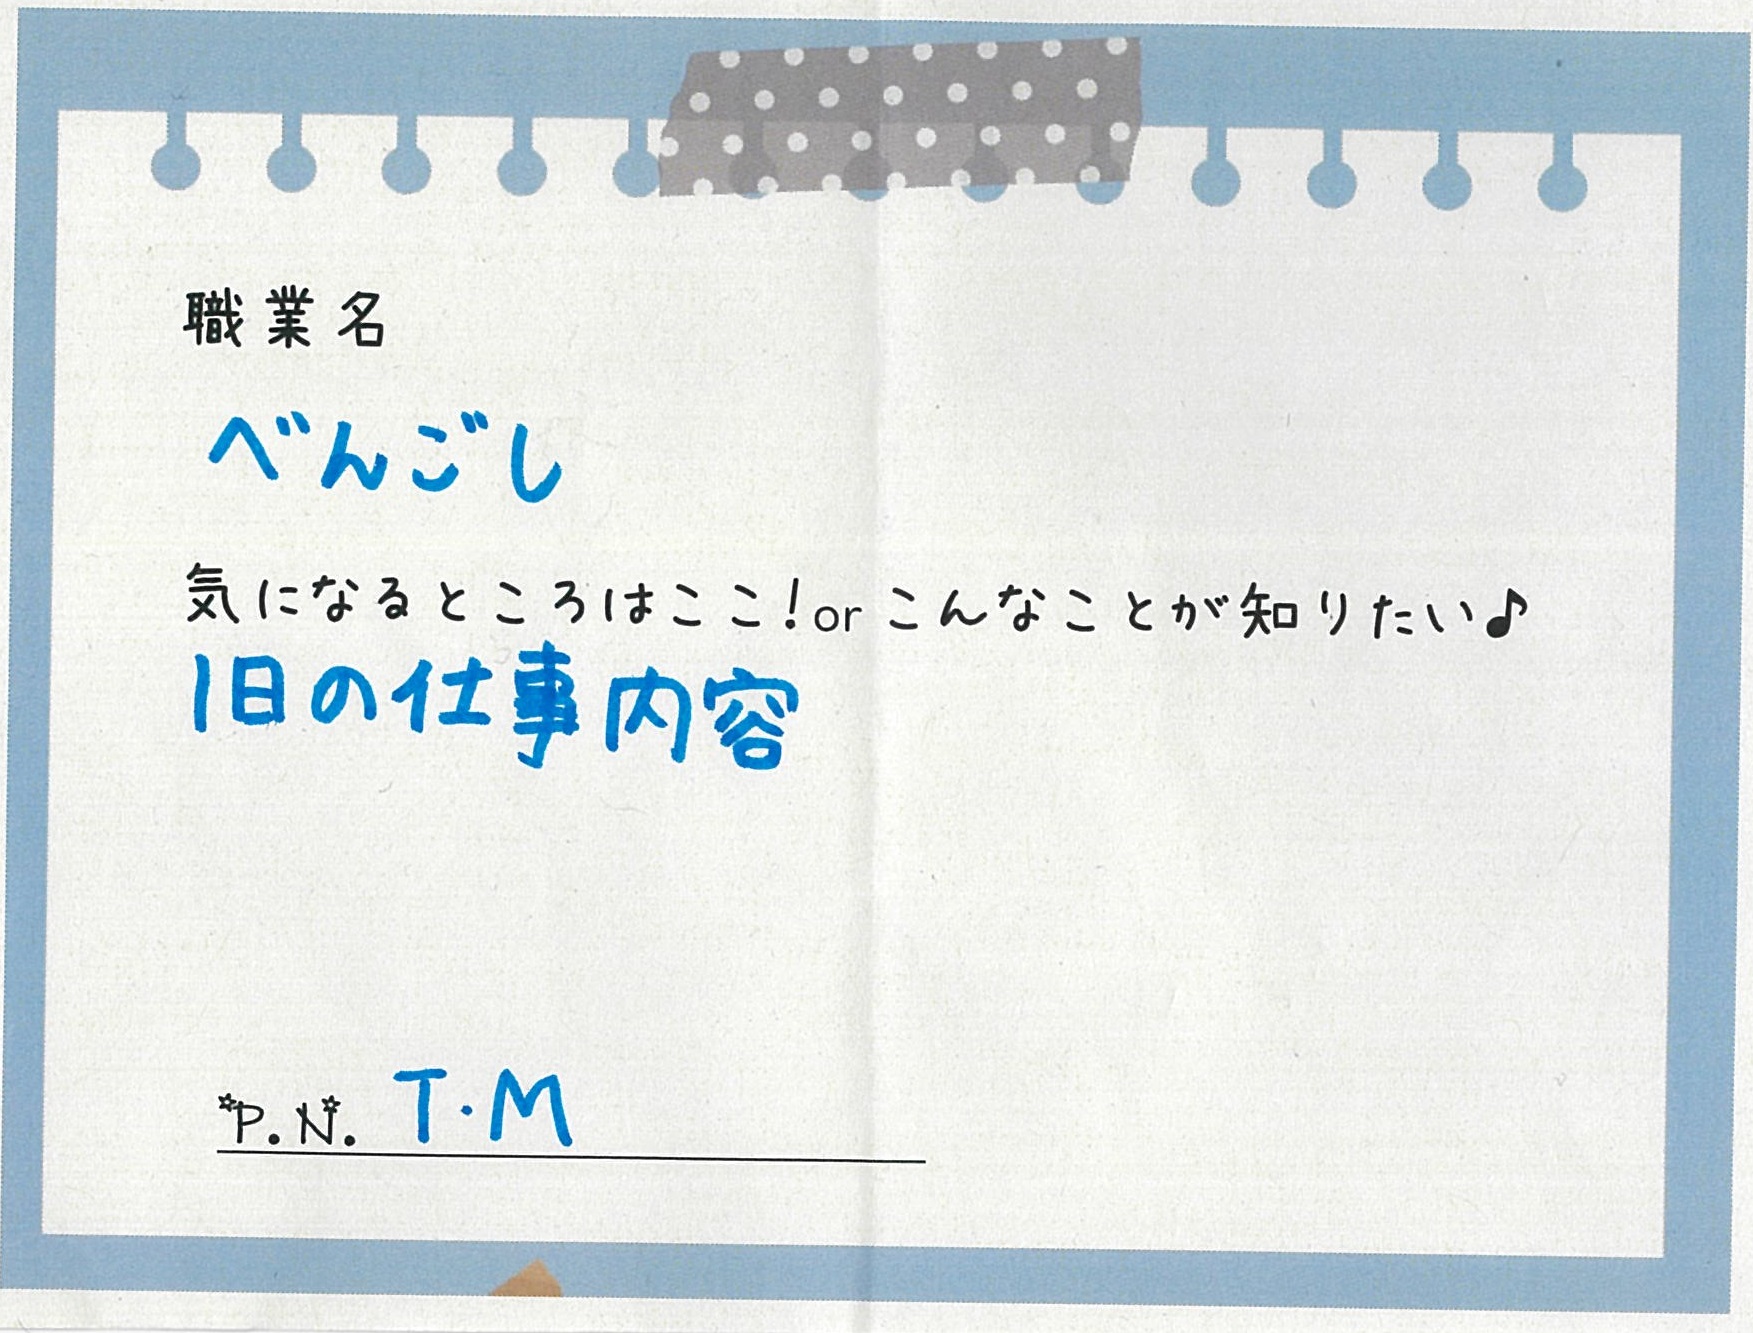 職業名
べんごし
気になるところはここ!orこんなことが知りたい♪
1日の仕事内容
P.N. T・M